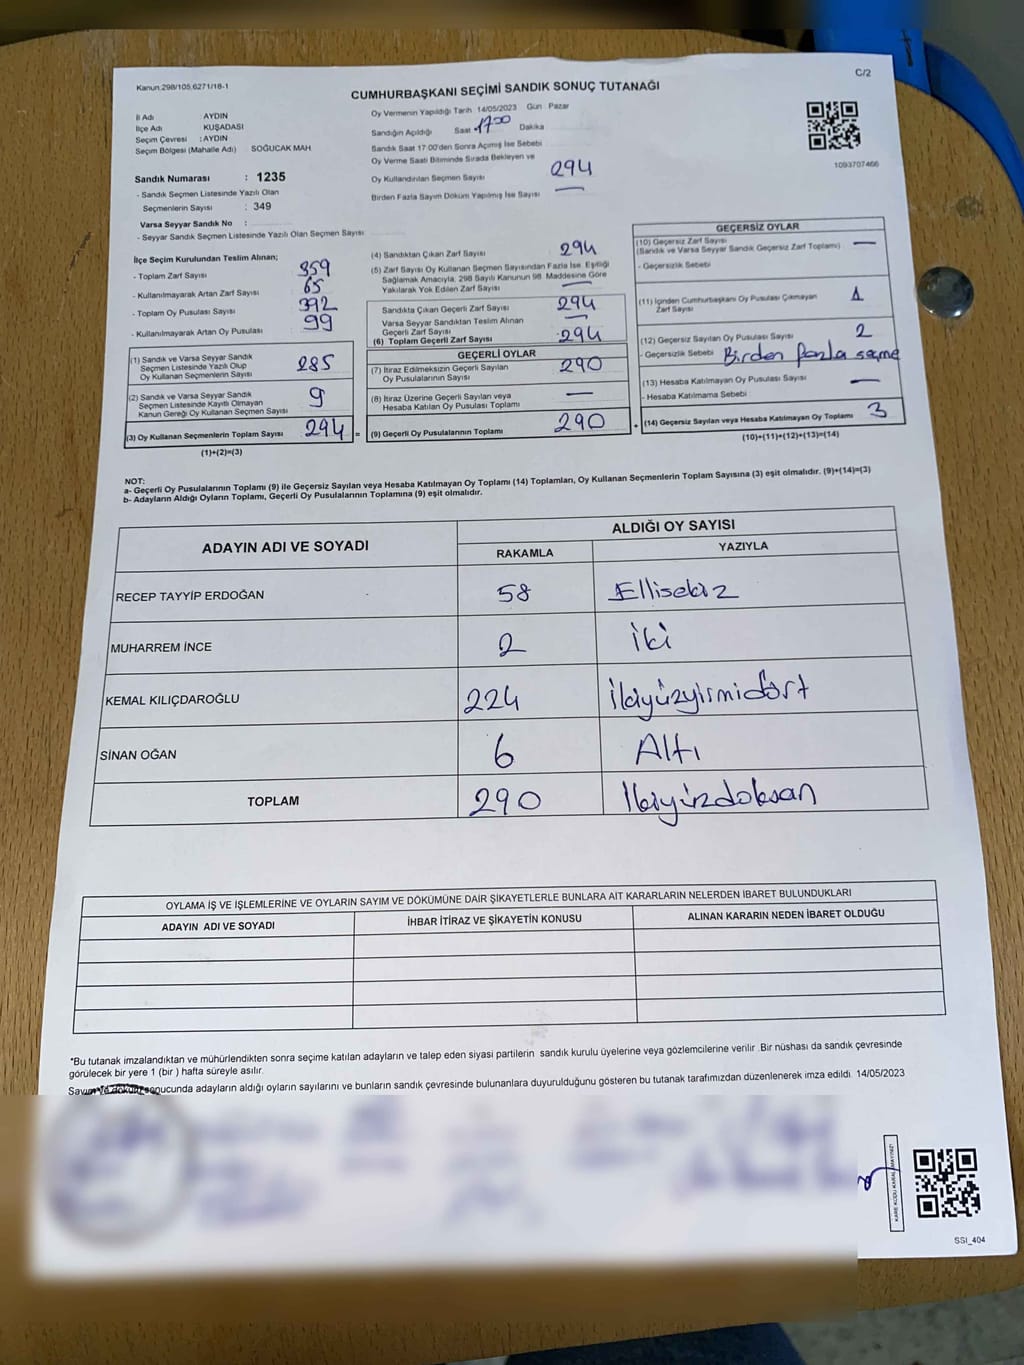 Kanun:298/105,6271/16-1
C/2
CUMHURBAŞKANI SEÇİMİ SANDIK SONUÇ TUTANAĞI
İl Adı AYDIN
İlçe Adı KUŞADASI
Seçim Çevresi : AYDIN
Seçim Bölgesi (Mahalle Adı) SOĞUCAK MAH
Sandık Numarası : 1235
- Sandık Seçmen Listesinde Yazılı Olan
Seçmenlerin Sayısı : 349
Varsa Seyyar Sandık No :
- Seyyar Sandık Seçmen Listesinde Yazılı Olan Seçmen Sayısı
Oy Vermenin Yapıldığı Tarih 14/05/2023 Gün Pazar
Sandığın Açıldığı Saat 1700 Dakika
Sandık Saat 17:00'den Sonra Açılmış İse Sebebi
Oy Verme Saati Bitiminde Sırada Bekleyen ve
Oy Kullandırılan Seçmen Sayısı 294
Birden Fazla Sayım Döküm Yapılmış İse Sayısı —
1093707466
İlçe Seçim Kurulundan Teslim Alınan;
- Toplam Zarf Sayısı 359
- Kullanılmayarak Artan Zarf Sayısı 65
- Toplam Oy Pusulası Sayısı 392
- Kullanılmayarak Artan Oy Pusulası 99
(1) Sandık ve Varsa Seyyar Sandık
Seçmen Listesinde Yazılı Olup
Oy Kullanan Seçmenlerin Sayısı 285
(2) Sandık ve Varsa Seyyar Sandık
Seçmen Listesinde Kayıtlı Olmayan
Kanun Gereği Oy Kullanan Seçmen Sayısı 9
(3) Oy Kullanan Seçmenlerin Toplam Sayısı 294 =
(1)+(2)=(3)
(4) Sandıktan Çıkan Zarf Sayısı 294
(5) Zarf Sayısı Oy Kullanan Seçmen Sayısından Fazla İse, Eşitliği
Sağlamak Amacıyla, 298 Sayılı Kanunun 98. Maddesine Göre
Yakılarak Yok Edilen Zarf Sayısı —
Sandıkta Çıkan Geçerli Zarf Sayısı 294
Varsa Seyyar Sandıktan Teslim Alınan
Geçerli Zarf Sayısı —
(6) Toplam Geçerli Zarf Sayısı 294
GEÇERLİ OYLAR
(7) İtiraz Edilmeksizin Geçerli Sayılan
Oy Pusulalarının Sayısı 290
(8) İtiraz Üzerine Geçerli Sayılan veya
Hesaba Katılan Oy Pusulası Toplamı —
(9) Geçerli Oy Pusulalarının Toplamı 290 +
GEÇERSİZ OYLAR
(10) Geçersiz Zarf Sayısı —
(Sandık ve Varsa Seyyar Sandık Geçersiz Zarf Toplamı)
- Geçersizlik Sebebi
(11) İçinden Cumhurbaşkanı Oy Pusulası Çıkmayan
Zarf Sayısı 1
(12) Geçersiz Sayılan Oy Pusulası Sayısı 2
- Geçersizlik Sebebi Birden fazla seçme
(13) Hesaba Katılmayan Oy Pusulası Sayısı —
- Hesaba Katılmama Sebebi
(14) Geçersiz Sayılan veya Hesaba Katılmayan Oy Toplamı 3
(10)+(11)+(12)+(13)=(14)
NOT:
a- Geçerli Oy Pusulalarının Toplamı (9) ile Geçersiz Sayılan veya Hesaba Katılmayan Oy Toplamı (14) Toplamları, Oy Kullanan Seçmenlerin Toplam Sayısına (3) eşit olmalıdır. (9)+(14)=(3)
b- Adayların Aldığı Oyların Toplamı, Geçerli Oy Pusulalarının Toplamına (9) eşit olmalıdır.
ADAYIN ADI VE SOYADI ALDIĞI OY SAYISI
RAKAMLA YAZIYLA
RECEP TAYYİP ERDOĞAN 58 Ellisekiz
MUHARREM İNCE 2 iki
KEMAL KILIÇDAROĞLU 224 ikiyüzyirmidört
SİNAN OĞAN 6 Altı
TOPLAM 290 İkiyüzdoksan
OYLAMA İŞ VE İŞLEMLERİNE VE OYLARIN SAYIM VE DÖKÜMÜNE DAİR ŞİKAYETLERLE BUNLARA AİT KARARLARIN NELERDEN İBARET BULUNDUKLARI
ADAYIN ADI VE SOYADI İHBAR İTİRAZ VE ŞİKAYETİN KONUSU ALINAN KARARIN NEDEN İBARET OLDUĞU
*Bu tutanak imzalandıktan ve mühürlendikten sonra seçime katılan adayların ve talep eden siyasi partilerin sandık kurulu üyelerine veya gözlemcilerine verilir .Bir nüshası da sandık çevresinde
görülecek bir yere 1 (bir ) hafta süreyle asılır.
Sayım ve döküm sonucunda adayların aldığı oyların sayılarını ve bunların sandık çevresinde bulunanlara duyurulduğunu gösteren bu tutanak tarafımızdan düzenlenerek imza edildi. 14/05/2023
KARE KODU KARALAMAYINIZ!
SSI_404